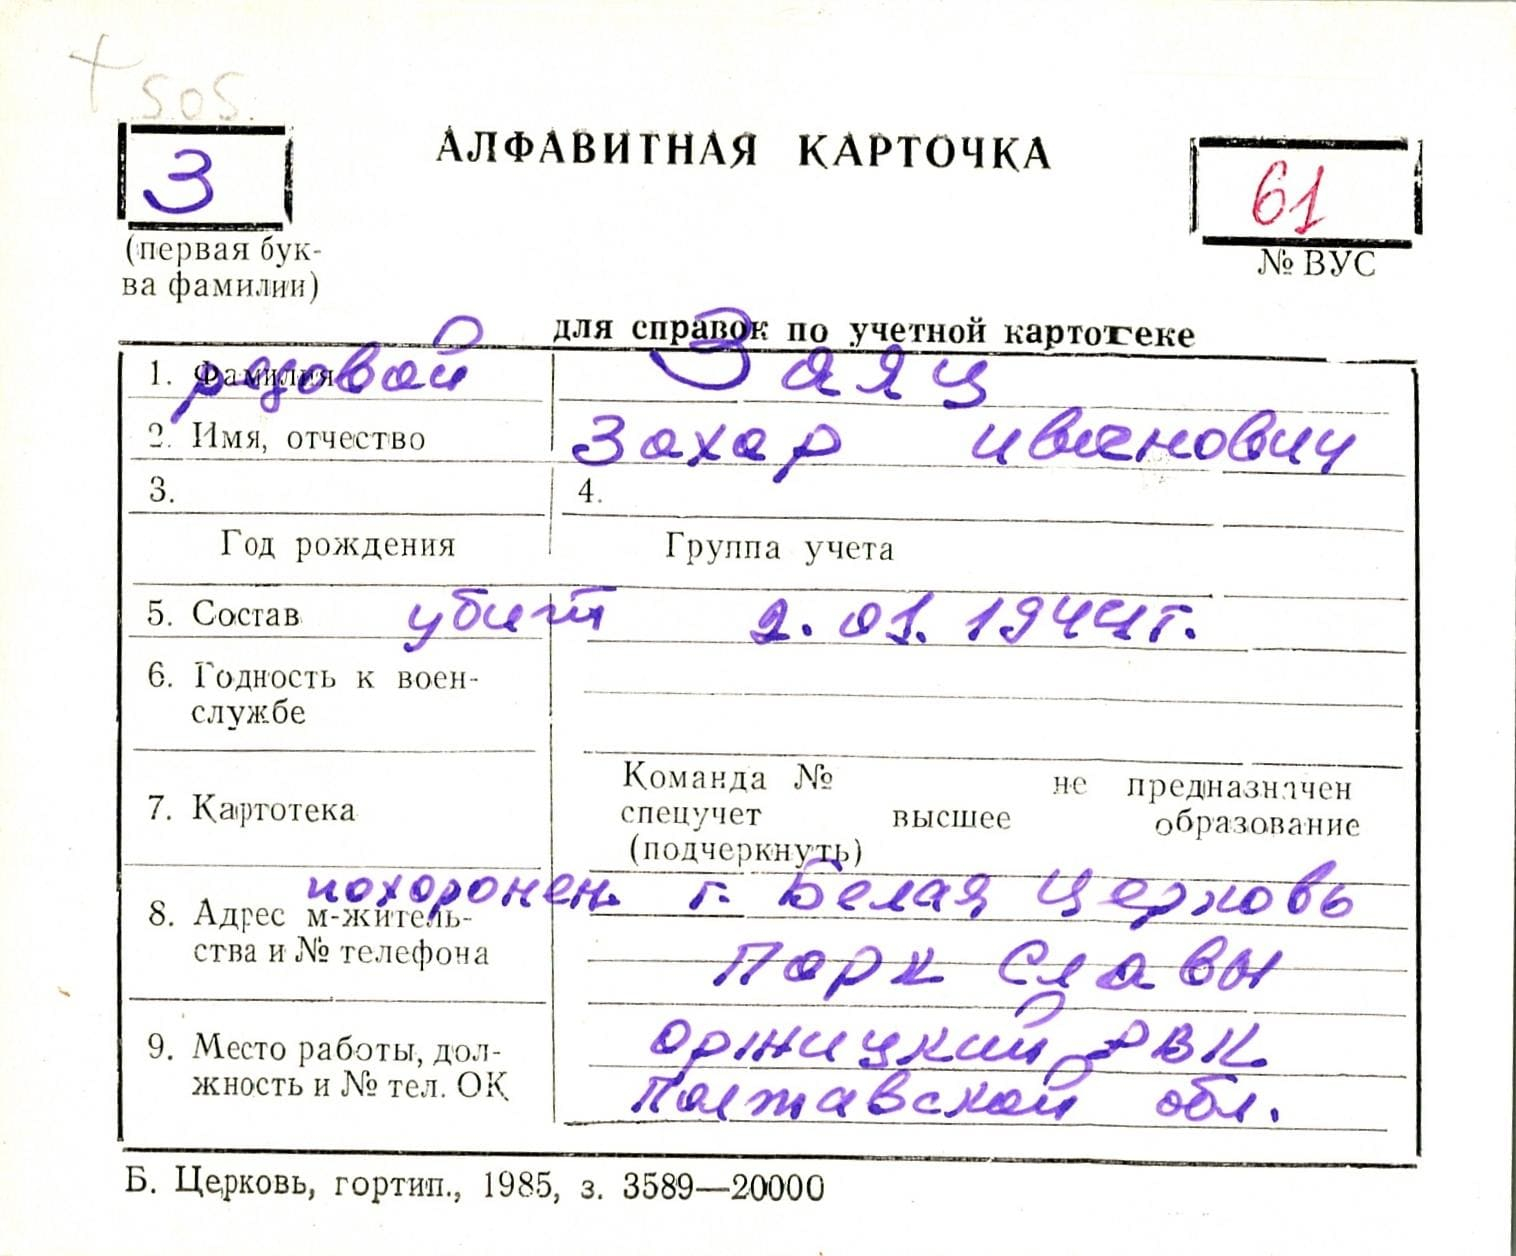 + SOS.
З
АЛФАВИТНАЯ КАРТОЧКА
61
(первая бук-
ва фамилии)
№ ВУС
для справок по учетной картотеке
1. Фамилия рядовой Заяц
2. Имя, отчество Захар иванович
3. 4.
Год рождения Группа учета
5. Состав убит 2.01.1944г.
6. Годность к воен-
службе
Команда № не предназначен
7. Картотека спецучет высшее образование
(подчеркнуть)
похоронен. г. Белая Церковь
8. Адрес м-житель-
ства и № телефона Парк Славы
9. Место работы, дол- Оржицкий РВК.
жность и № тел. ОК Полтавской обл.
Б. Церковь, гортип., 1985, з. 3589—20000